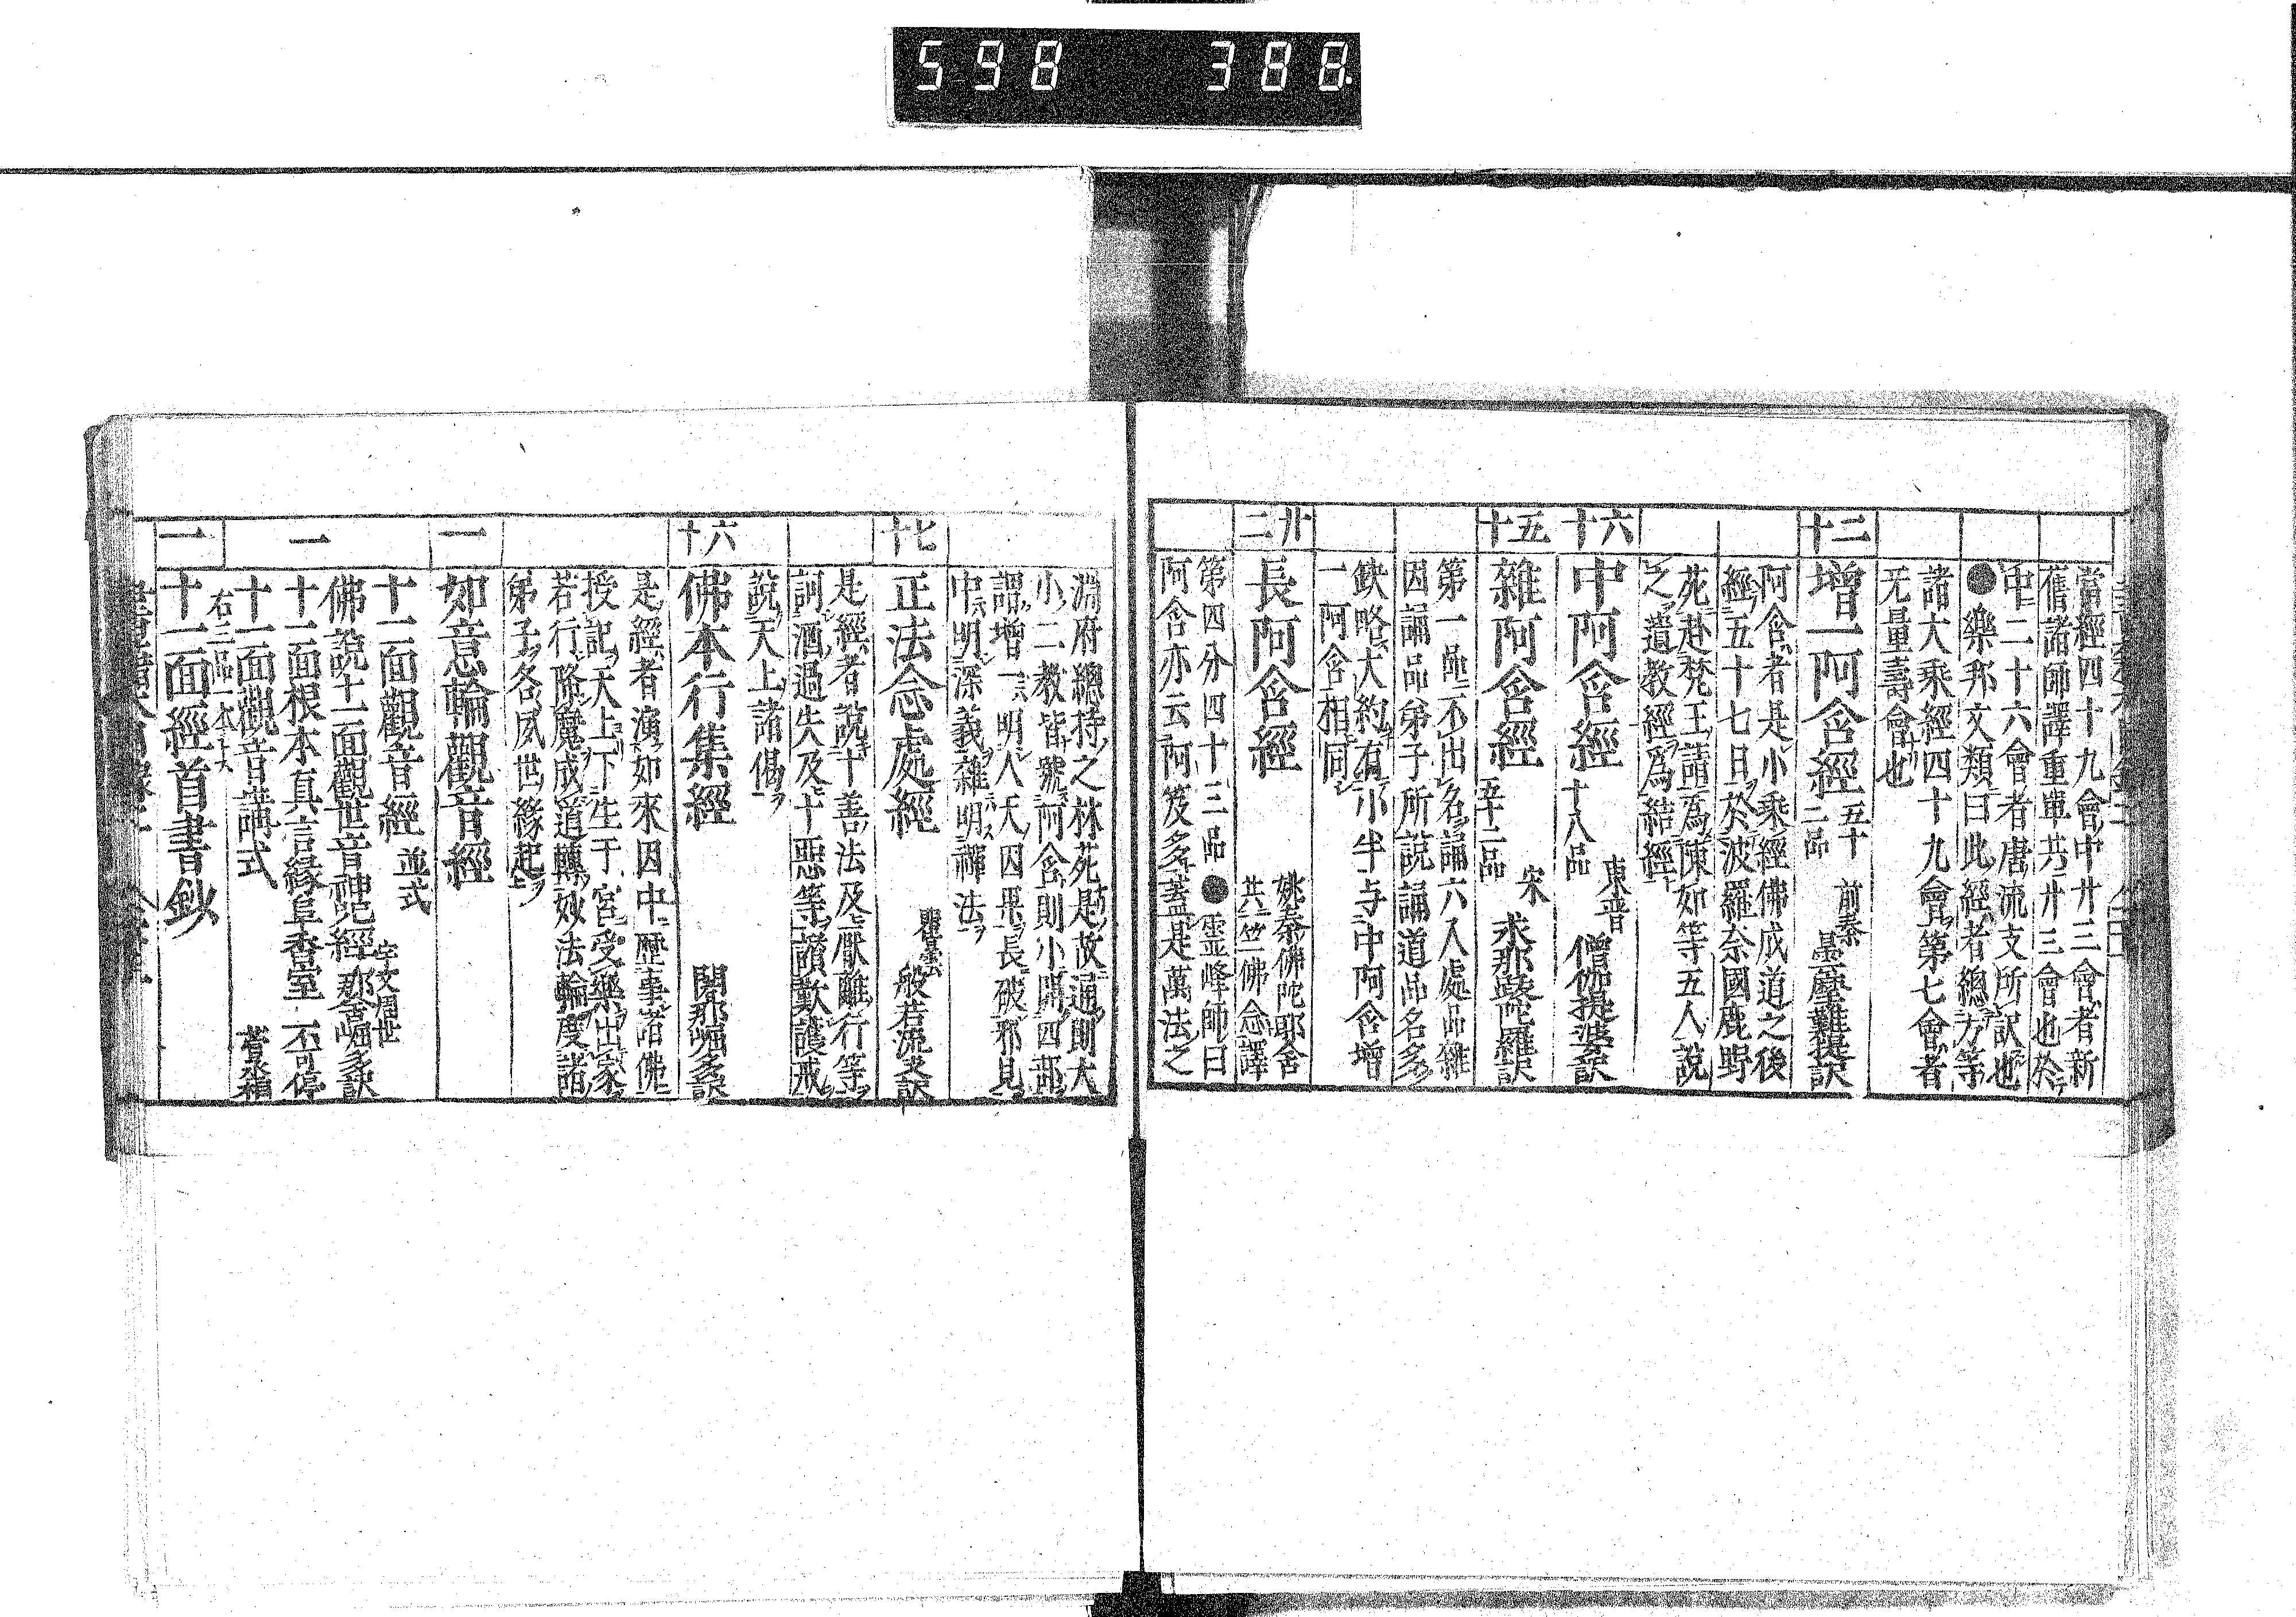 598 388
當經四十九會中廿三會者新
舊諸師譯重單共廿三會也於
中二十六會者唐流支所訳也
●樂邦文類曰此經者總方等
諸大乘經四十九會第七會者
无量壽會也
二十 增一阿含經 五十二品 前秦 曇摩難提訳
阿含者是小乘經佛成道之後
經五十七日於波羅奈國鹿野
苑赴梵王請為陳如等五人說
之遺教經為結經
六十 中阿含經 十八品 東晉 僧伽提婆訳
五十 雜阿含經 五十二品 宋 求那跋陀羅訳
第一品不出名誦六入處品雜
因誦品弟子所說誦道品名多
鈌略大約有小半与中阿含增
一阿含相同
廿二 長阿含經 姚秦佛陀耶舍共竺佛念譯
第四分四十三品●霊峰師曰
阿含亦云阿笈多蓋是萬法之
淵府總持之林苑是故通則大
小二教皆號阿含則小開四部
謂增一明人天因果長破邪見
中明深義雜明禪法
七十 正法念處經 瞿曇 般若流支訳
是經者說十善法及厭離行等
訶酒過失及十惡等讃歎護戒
說天上諸偈
六十 佛本行集經 闍那崛多訳
是經者演如來因中歷事諸佛
授記天上下生于宮受樂出家
苦行降魔成道轉妙法輪度諸
弟子各夙世緣起
一 如意輪觀音經
十一面觀音經 並式
佛說十一面觀世音神咒經 宇文周世 耶舍崛多訳
一 十一面根本真言緣阜香室 不可停
十一面觀音講式
右三區一本
一 十一面經首書鈔